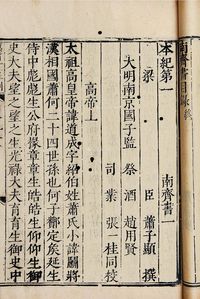 南齊書目錄終
本紀第一　南齊書一
梁　臣蕭子顯　撰
大明南京國子監　祭酒趙用賢
司業張　桂同校
高帝上
太祖高皇帝諱道成字紹伯姓蕭氏小諱鬬將
漢相國蕭何二十四世孫也何子酇定矦延生
侍中彪彪生公府掾章章生皓皓生仰仰生御
史大夫望之望之生光祿大夫育育生御史中